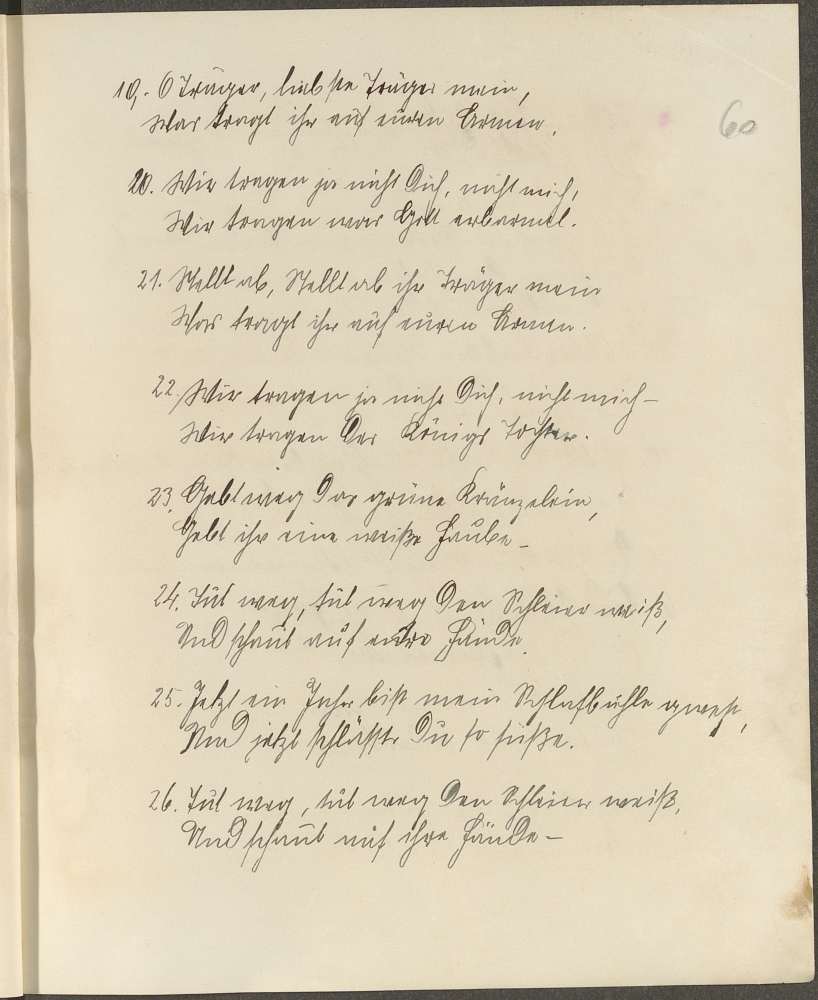 19. O Träger, liebste Träger mein,
Was tragt ihr auf euren Armen.
60
20. Wir tragen ja nicht Dich, nicht mich,
Wir tragen was Gott erbarmet.
21. Stellt ab, Stellt ab ihr Träger mein
Was tragt ihr auf euren Armen.
22. Wir tragen ja nicht Dich, nicht mich –
Wir tragen Des Königs Tochter.
23. Gebt weg Das grüne Kränzelein,
Gebt ihr eine weiße Haube –
24. Tut weg, tut weg Den Schleier weiß,
Und schaut auf eure Hände.
25. Jetzt ein Jahr bist mein Schlafbuhle gwest,
Und jetzt schläfst Du so süße.
26. Tut weg, tut weg Den Schleier weiß,
Und schaut auf ihre Hände –